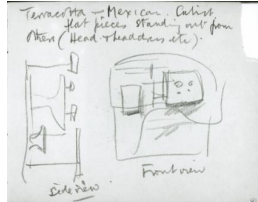 Terracotta – Mexican. Cubist
flat pieces standing out from
others (Head + headdress etc).
Side view
Front view